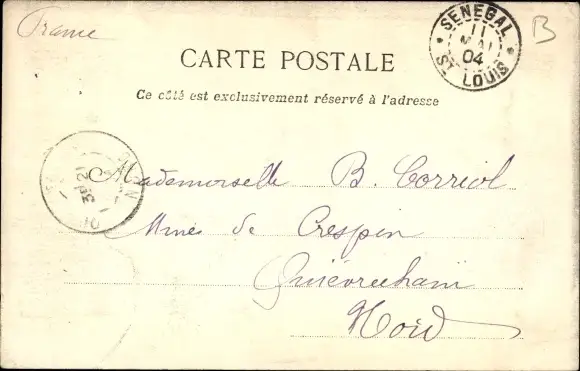 France
B
SENEGAL
11
MAI
04
ST LOUIS
CARTE POSTALE
Ce côté est exclusivement réservé à l'adresse
Mademoiselle B. Corriol
Mines de Crespin
Quiévrechain
Nord